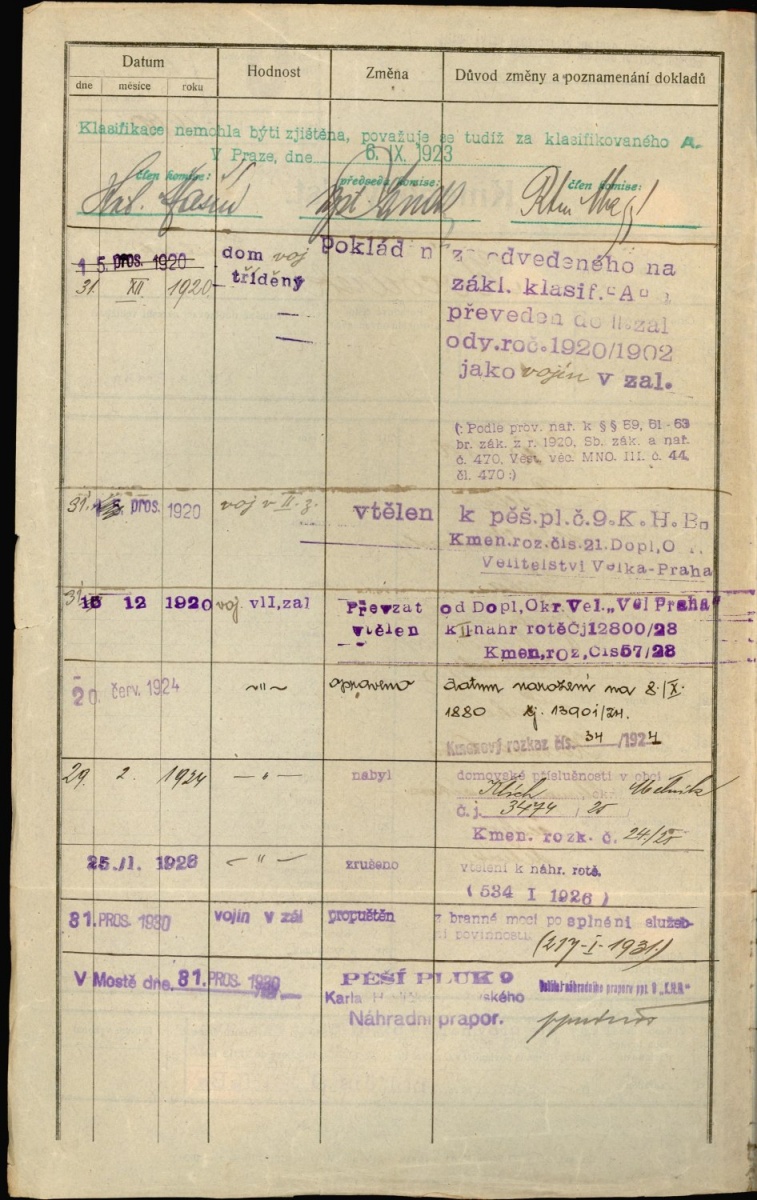 Datum
Hodnost
Změna
Důvod změny a poznamenání dokladů
dne
měsíce
roku
Klasifikace nemohla býti zjištěna, považuje se tudíž za klasifikovaného A.
V Praze, dne 6. IX. 1923
člen komise:
předseda komise:
člen komise:
1 5. pros. 1920
dom voj
Poklád
odvedeného na
31. XII 1920
tříděný
zákl. klasif. "A"
převeden do II. zal
ody. roč. 1920/1902
jako vojín v zal.
(: Podle prov. nař. k §§ 59, 61-63
br. zák. z r. 1920, Sb. zák. a nař.
č. 470, Věst. věc. MNO. III. č. 44,
čl. 470 :)
31. pros. 1920
voj v II. z.
vtělen
k pěš. pl. č. 9. K. H. B.
Kmen. roz. čís. 21. Dopl, O
Velitelství Velká-Praha
31 15 12 1920
voj. v II, zal
Převzat
od Dopl, Okr. Vel. „Vel Praha"
vtělen
k II náhr rotě Čj 12800/28
Kmen, roz, Čís 57/28
20. červ. 1924
—"—
opraveno
datum narození na 8./IX.
1880 čj. 1390i/24.
Kmenový rozkaz čís. 34 /1924
29. 2. 1924
—"—
nabyl
domovské příslušnosti v obci
Mělník
č. j. 3474 / 25
Kmen. rozk. č. 24/25
25. /I. 1926
—"—
zrušeno
vtělení k náhr. rotě.
(534 I 1926)
31. PROS. 1930
vojín v zál
propuštěn
z branné moci po splnění služeb-
ní povinnosti
(217-I-1931.)
V Mostě dne, 31. PROS. 1930
PĚŠÍ PLUK 9
Karla
Náhradní prapor.
Velitel náhradního praporu pěš. pl. 9 „K.H.B."